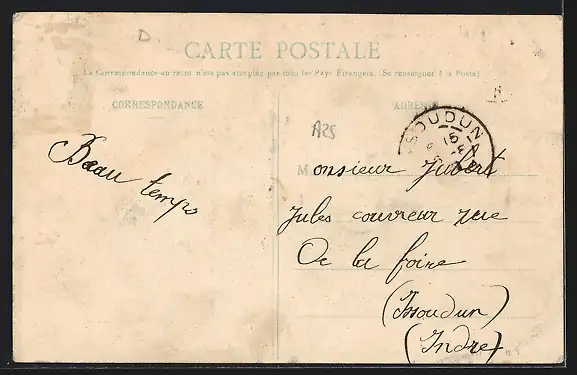 CARTE POSTALE
La Correspondance au recto n'est pas acceptée par tous les Pays Étrangers. (Se renseigner à la Poste)
CORRESPONDANCE
ADRESSE
A25
ISSOUDUN
15
Beau temps
Monsieur Jubert
Jules couvreur rue
De la foire
(Issoudun)
(Indre)